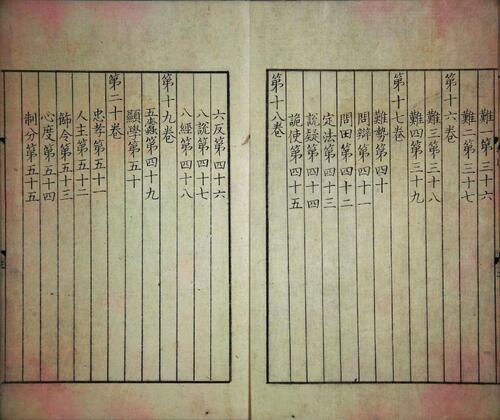 難一第三十六
難二第三十七
第十六卷
難三第三十八
難四第三十九
第十七卷
難勢第四十
問辯第四十一
問田第四十二
定法第四十三
說疑第四十四
詭使第四十五
第十八卷
六反第四十六
八說第四十七
八經第四十八
第十九卷
五蠹第四十九
顯學第五十
第二十卷
忠孝第五十一
人主第五十二
飾令第五十三
心度第五十四
制分第五十五